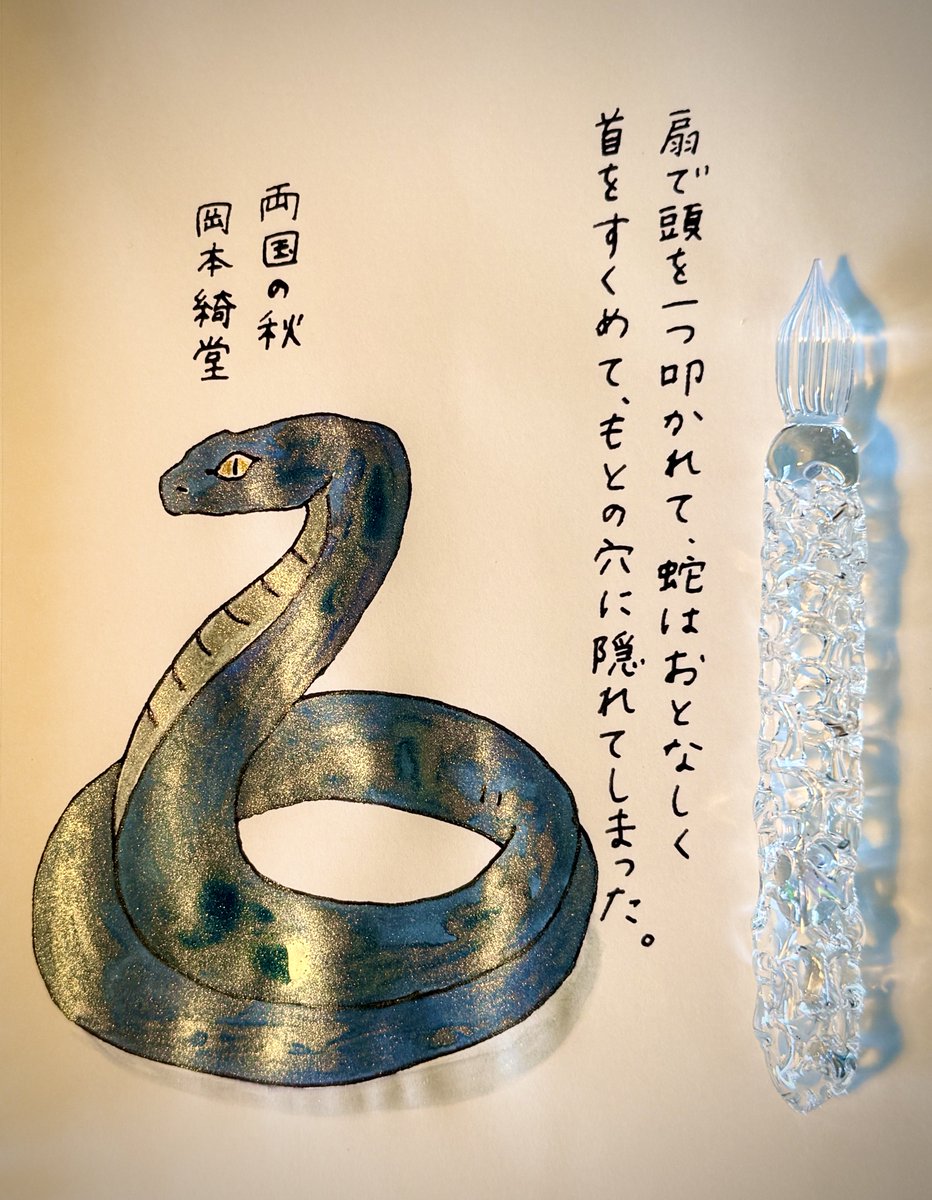 扇で頭を一つ叩かれて、蛇はおとなしく
首をすくめて、もとの穴に隠れてしまった。
両国の秋
岡本綺堂